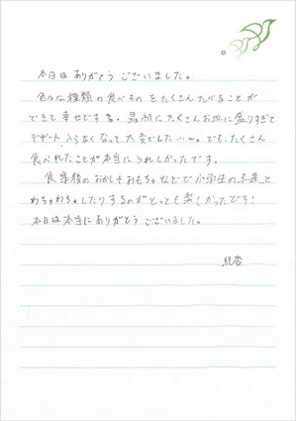 本日はありがとうございました。
色々な種類の食べものをたくさんたべることが
できて幸せです。最初にたくさんお皿に盛りすぎて
デザート入らなくなって大変でした…w。でも、たくさん
食べれたことが本当にうれしかったです。
食事後のおかしやおもちゃなどで小学生の子達と
わちゃわちゃしたりするのがとっても楽しかったです!
本日は本当にありがとうございました。